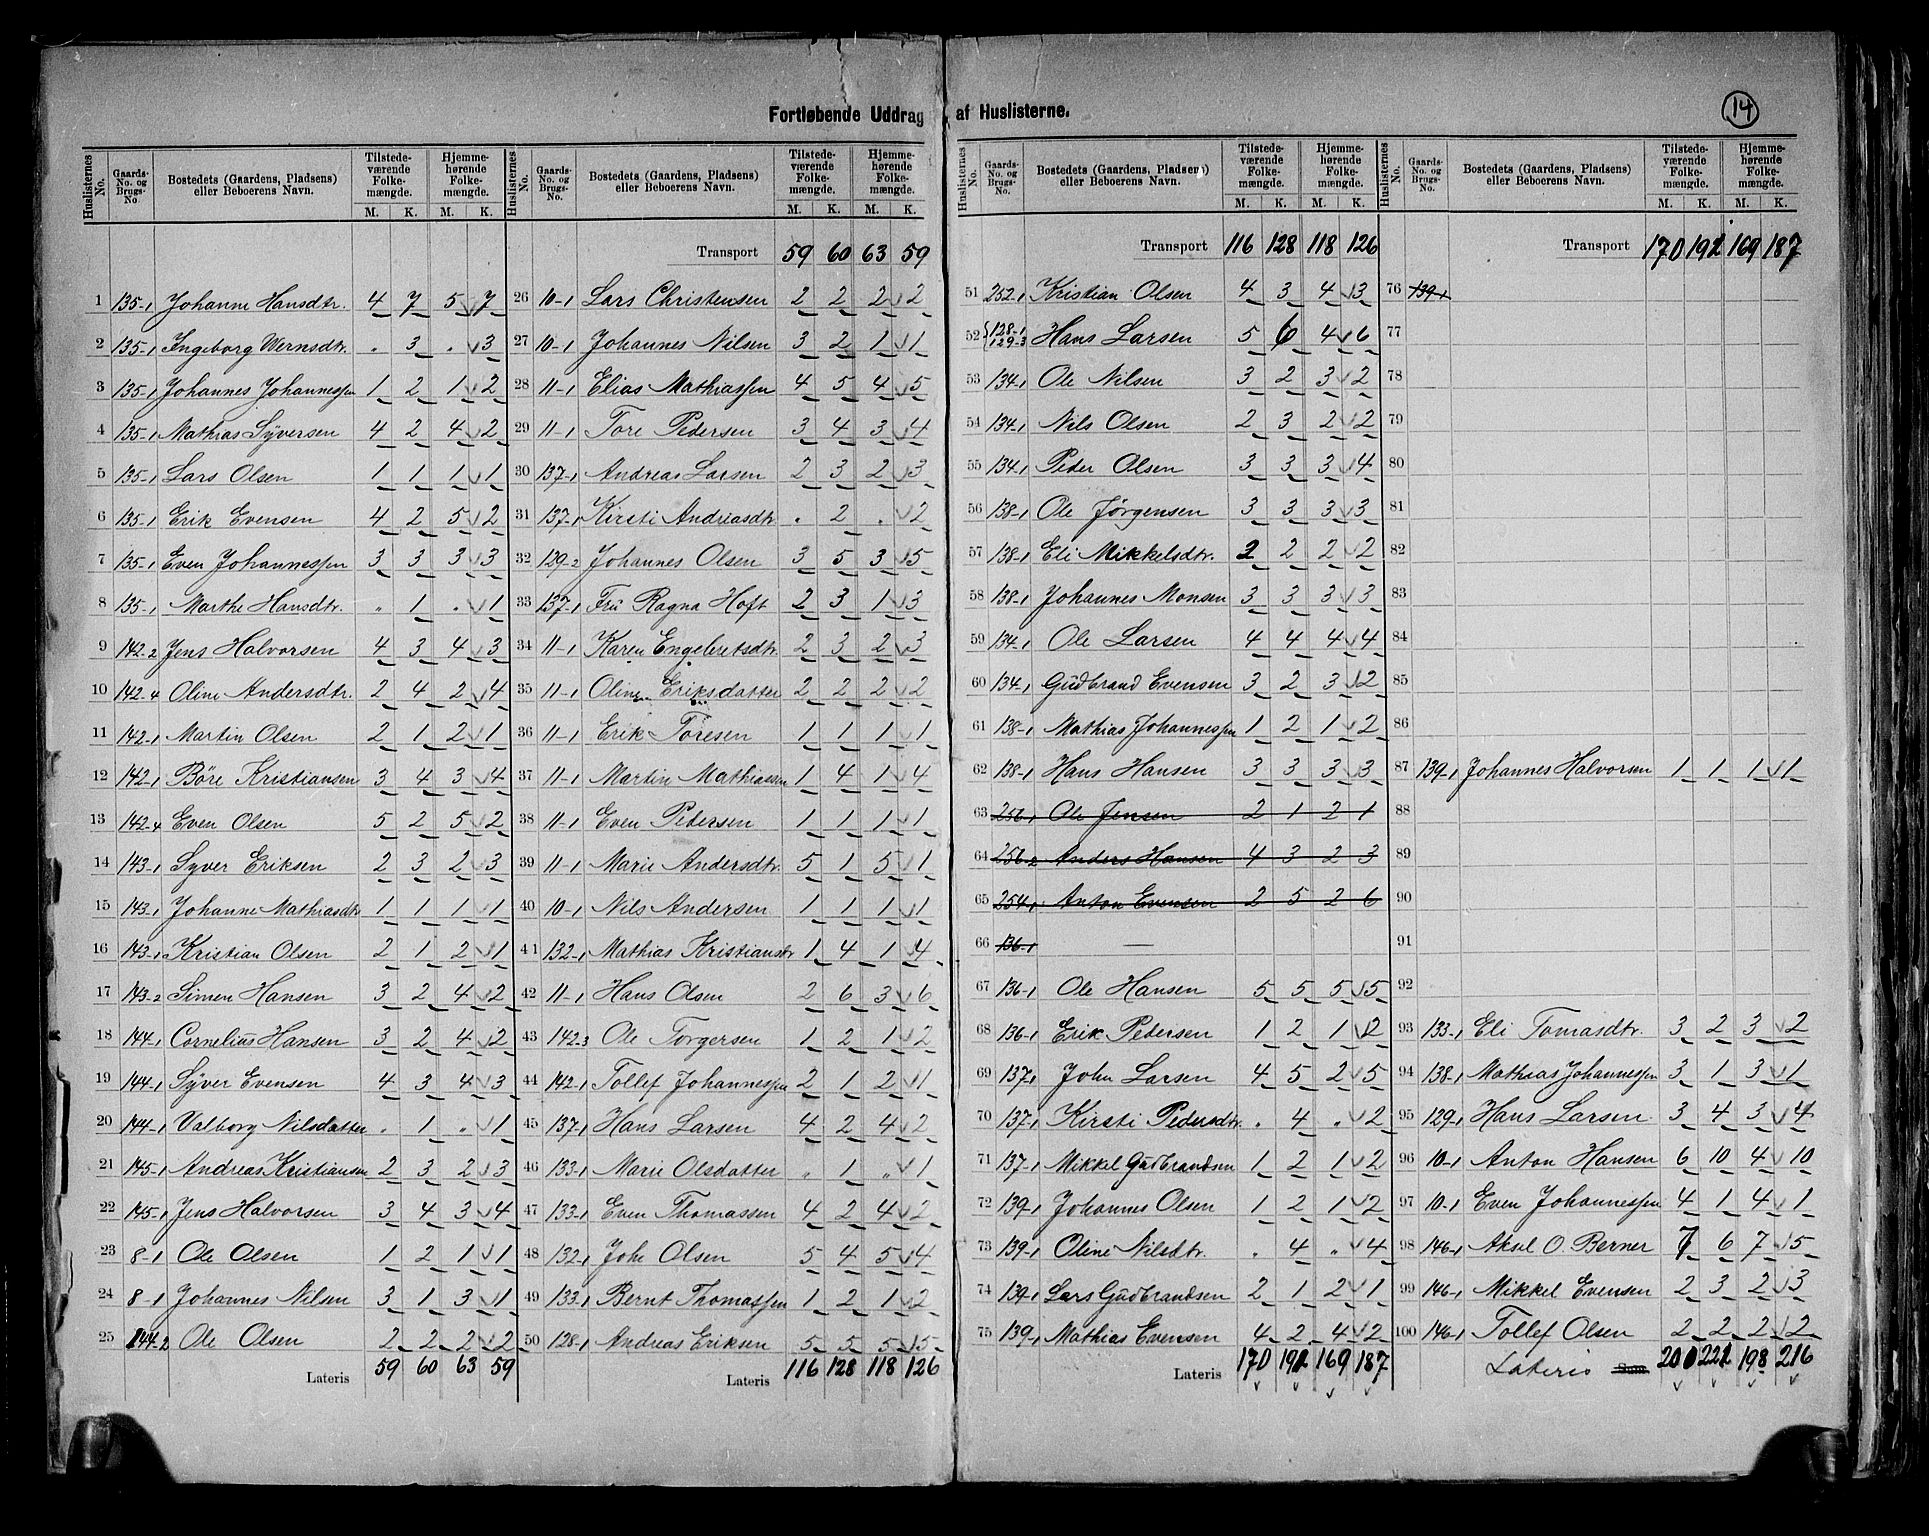 Fortløbende Uddrag af Huslisterne.
14
Huslisternes No. | Gaards-No. og Brugs-No | Bostedets (Gaardens, Pladsens) eller Beboerens Navn. | Tilstedeværende Folkemængde. M. K. | Hjemmehørende Folkemængde. M. K.
1 135-1 Johanne Hansdtr. 4 7 5 7
2 135-1 Ingeborg Wernsdtr. " 3 " 3
3 135-1 Johannes Johannessen 1 2 1 2
4 135-1 Mathias Syversen 4 2 4 2
5 135-1 Lars Olsen 1 1 1 1
6 135-1 Erik Evensen 4 2 5 2
7 135-1 Even Johannessen 3 3 3 3
8 135-1 Marthe Hansdtr. " 1 " 1
9 142-2 Jens Halvorsen 4 3 4 3
10 142-4 Oline Andersdtr. 2 4 2 4
11 142-1 Martin Olsen 2 1 2 1
12 142-1 Böre Kristiansen 3 4 3 4
13 142-4 Even Olsen 5 2 5 2
14 143-1 Syver Eriksen 2 3 2 3
15 143-1 Johanne Mathiasdtr 1 1 1 1
16 143-1 Kristian Olsen 2 1 2 1
17 143-2 Simen Hansen 3 2 4 2
18 144-1 Cornelius Hansen 3 2 4 2
19 144-1 Syver Evensen 4 3 4 3
20 144-1 Valborg Nilsdatter " 1 " 1
21 145-1 Andreas Kristiansen 2 3 2 3
22 145-1 Jens Halvorsen 3 4 3 4
23 8-1 Ole Olsen 1 2 1 1
24 8-1 Johannes Nilsen 3 1 3 1
25 144-2 Ole Olsen 2 2 2 2
Lateris 59 60 63 59
Huslisternes No. | Gaards-No. og Brugs-No. | Bostedets (Gaardens, Pladsens) eller Beboerens Navn. | Tilstedeværende Folkemængde. M. K. | Hjemmehørende Folkemængde. M. K.
Transport 59 60 63 59
26 10-1 Lars Christensen 2 2 2 2
27 10-1 Johannes Nilsen 3 2 1 1
28 11-1 Elias Mathiassen 4 5 4 5
29 11-1 Tore Pedersen 3 4 3 4
30 137-1 Andreas Larsen 2 3 2 3
31 137-1 Kirsti Andreasdtr " 2 " 2
32 129-2 Johannes Olsen 3 5 3 5
33 137-1 Fru Ragna Hoft 2 3 1 3
34 11-1 Karen Engebretsdtr. 2 3 2 3
35 11-1 Oline Eriksdatter 2 2 2 2
36 11-1 Erik Töresen 1 1 1 1
37 11-1 Martin Mathiassen 1 4 1 4
38 11-1 Even Pedersen 1 1 1 1
39 11-1 Marie Andersdtr. 5 1 5 1
40 10-1 Nils Andersen 1 1 1 1
41 132-1 Mathias Kristiansdtr 1 4 1 4
42 11-1 Hans Olsen 2 6 3 6
43 142-3 Ole Torgersen 1 2 1 2
44 142-1 Tollef Johannessen 2 1 2 1
45 137-1 Hans Larsen 4 2 4 2
46 133-1 Marie Olsdatter " 1 " 1
47 133-1 Even Thomassen 4 2 4 2
48 132-1 Joh. Olsen 5 4 5 4
49 133-1 Bernt Thomassen 1 2 1 2
50 128-1 Andreas Eriksen 5 5 5 5
Lateris 116 128 118 126
Huslisternes No. | Gaards-No. og Brugs-No. | Bostedets (Gaardens, Pladsens) eller Beboerens Navn. | Tilstedeværende Folkemængde. M. K. | Hjemmehørende Folkemængde. M. K.
Transport 116 128 118 126
51 252-1 Kristian Olsen 4 3 4 3
52 128-1 129-3 Hans Larsen 5 6 4 6
53 134-1 Ole Nilsen 3 2 3 2
54 134-1 Nils Olsen 2 3 2 2
55 134-1 Peder Olsen 3 3 3 4
56 138-1 Ole Jørgensen 3 3 3 3
57 138-1 Eli Mikkelsdtr. 2 2 2 2
58 138-1 Johannes Monsen 3 3 3 3
59 134-1 Ole Larsen 4 4 4 4
60 134-1 Gudbrand Evensen 3 2 3 2
61 138-1 Mathias Johannessen 1 2 1 2
62 138-1 Hans Hansen 3 3 3 3
63 256-1 Ole Jensen 2 1 2 1
64 256-2 Anders Hansen 4 3 2 3
65 254-1 Anton Evensen 2 5 2 6
66 136-1 —
67 136-1 Ole Hansen 5 5 5 5
68 136-1 Erik Pedersen 1 2 1 2
69 137-1 John Larsen 4 5 2 5
70 137-1 Kirsti Pedersdtr. " 4 " 2
71 137-1 Mikkel Gudbrandsen 1 2 1 2
72 139-1 Johannes Olsen 1 2 1 2
73 139-1 Oline Nilsdtr. " 4 " 4
74 139-1 Lars Gudbrandsen 2 1 2 1
75 139-1 Mathias Evensen 4 2 4 2
Lateris 170 192 169 187
Huslisternes No. | Gaards-No. og Brugs-No. | Bostedets (Gaardens, Pladsens) eller Beboerens Navn. | Tilstedeværende Folkemængde. M. K. | Hjemmehørende Folkemængde. M. K.
Transport 170 192 169 187
76 139-1
77
78
79
80
81
82
83
84
85
86
87 139-1 Johannes Halvorsen 1 1 1 1
88
89
90
91
92
93 133-1 Eli Tomasdtr. 3 2 3 2
94 138-1 Mathias Johannessen 3 1 3 1
95 129-1 Hans Larsen 3 4 3 4
96 10-1 Anton Hansen 6 10 4 10
97 10-1 Even Johannessen 4 1 4 1
98 146-1 Aksel O. Berner 7 6 7 5
99 146-1 Mikkel Evensen 2 3 2 3
100 146-1 Tollef Olsen 2 2 2 2
Lateris 198 216